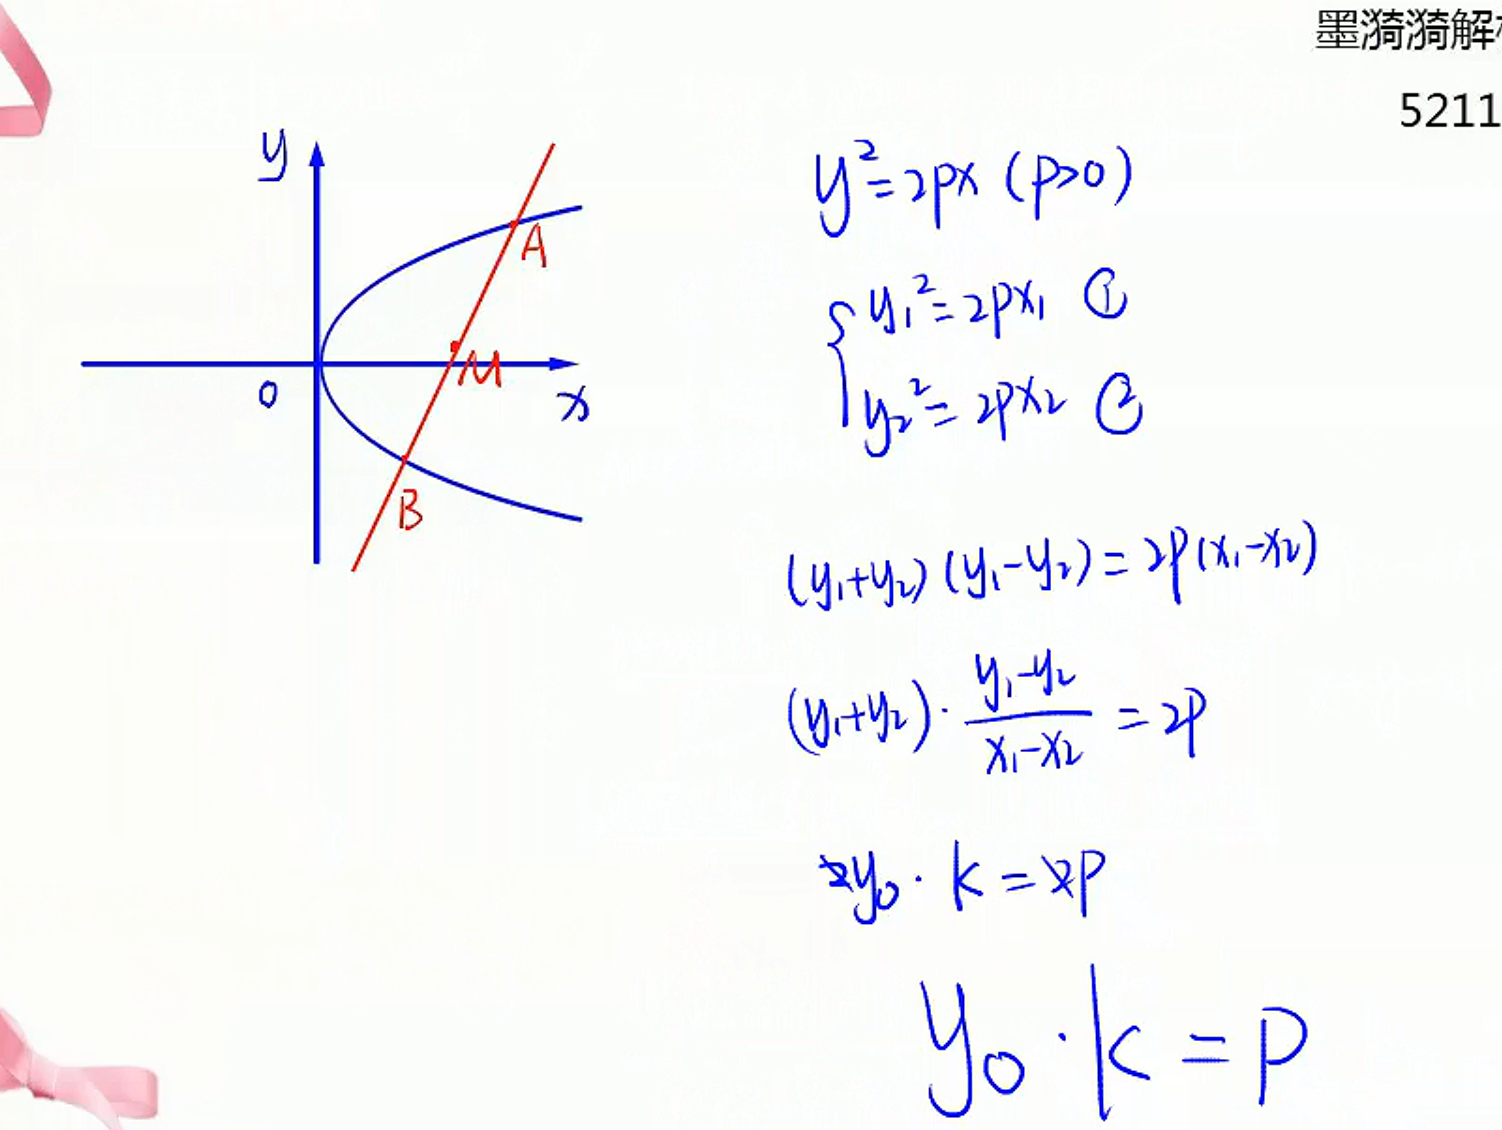 墨漪漪解
5211
y
A
M
O
x
B
y²=2px (p>0)
{ y₁²=2px₁ ①
y₂²=2px₂ ②
(y₁+y₂)(y₁-y₂)=2p(x₁-x₂)
(y₁+y₂)·(y₁-y₂)/(x₁-x₂)=2p
2y₀·k=2p
y₀·k=p